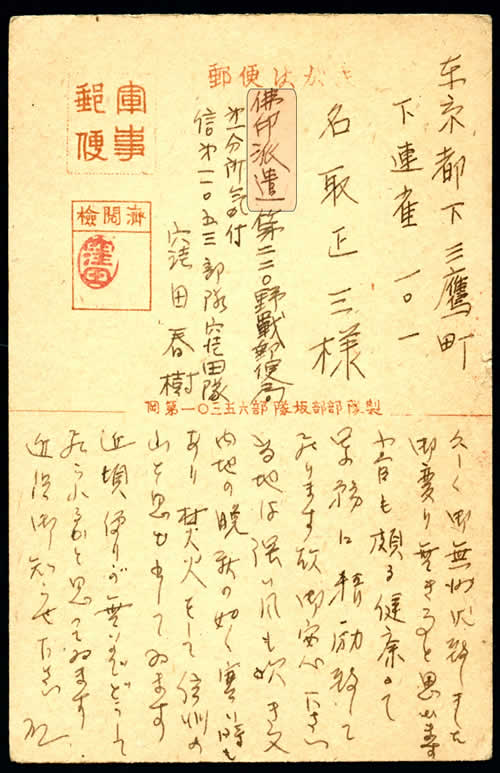 郵便はがき
軍事
郵便
検閲済
窪田
東京都下三鷹町
下連雀一〇一
名取正三様
佛印派遣第二二〇野戰郵便局
第一分所気付
信第一〇五三部隊窪田隊
窪田春樹
岡第一〇三五六部隊坂部部隊製
久しく御無沙汰致しました
御変り無き事と思います
小官も頗る健康にて
軍務に精励致して
居ります故御安心下さい
当地は強い風も吹き又
内地の晩秋の如く寒い時も
あり焚火をして信州の
山を思い出して居ります
近頃便りが無いがどうして
居られるかと思ってゐます
近況御知らせ下さい